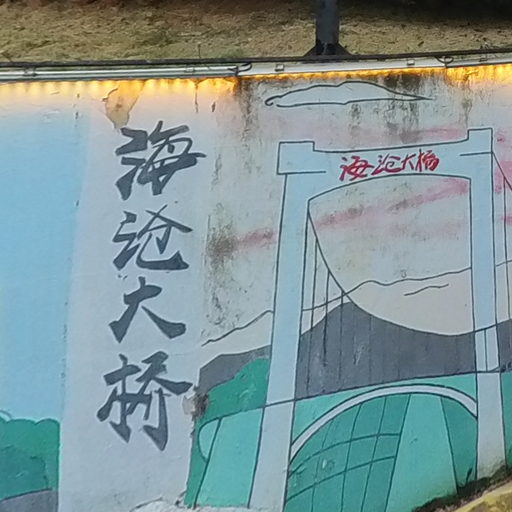 海沧大桥
海沧大桥